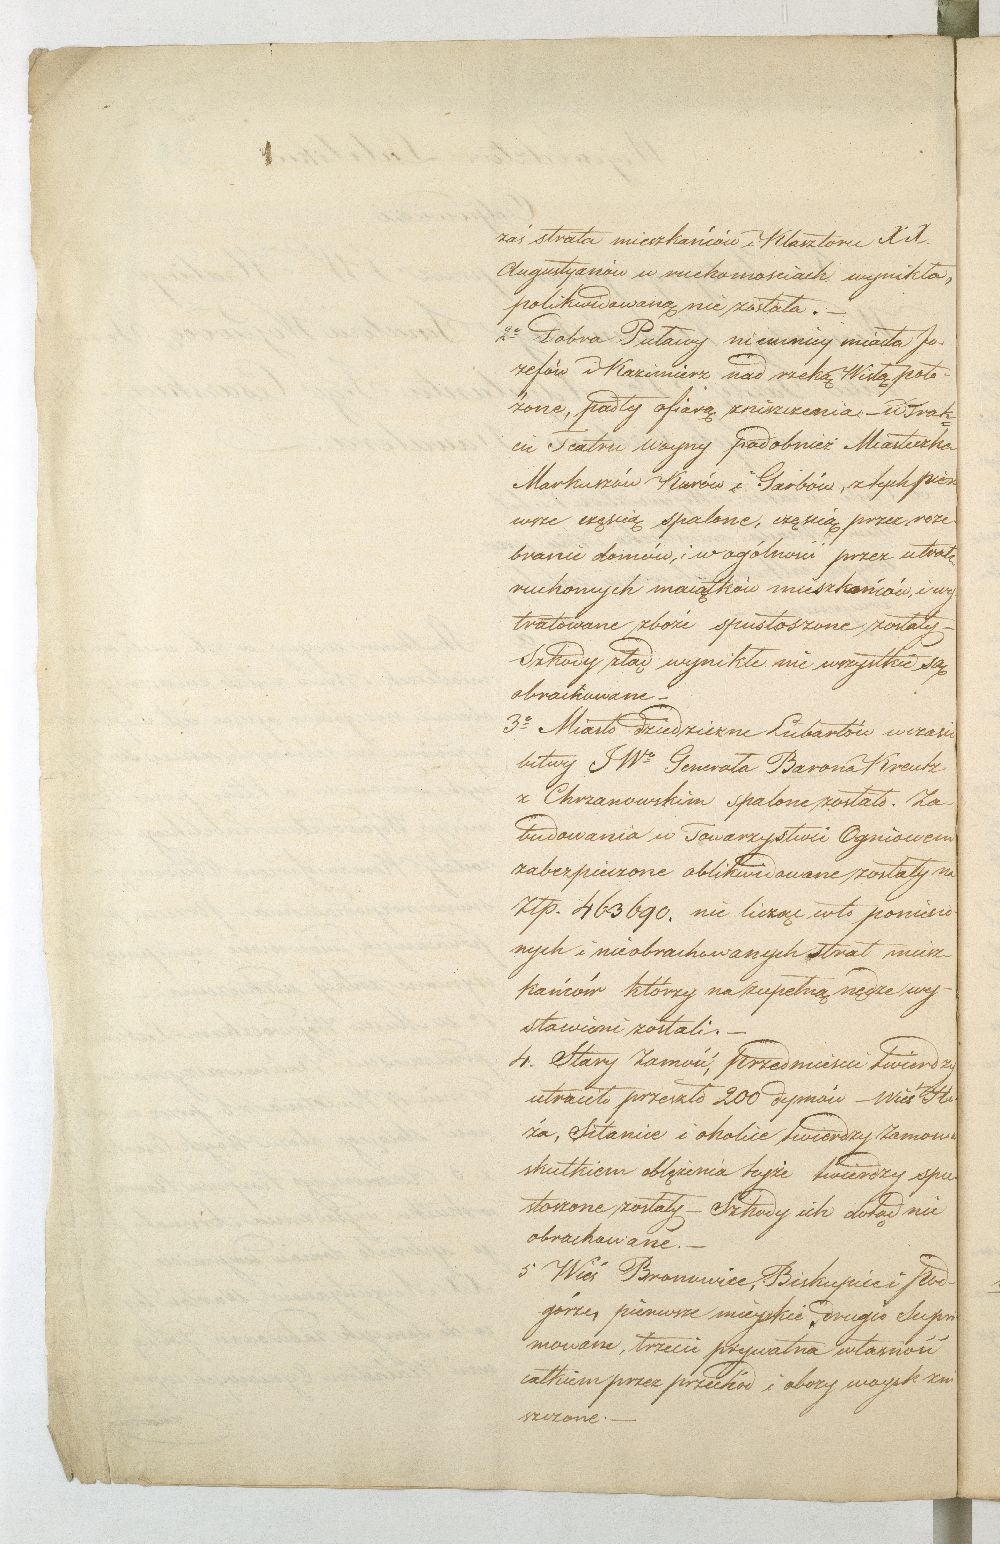 zaś strata mieszkańców i Klasztoru XX.
Augustyanów w ruchomościach wynikła,
polikwidowaną nie została. —
2o Dobra Puławy niemniey miasta Jo-
zefów i Kazimierz nad rzeką Wisłą poło-
żone, padły ofiarą zniszczenia — w Trak-
cie Teatru woyny podobnież Miasteczka
Markuszów Kurów i Garbów, z tych pier
wsze częścią spalone, częścią przez roze
branie domów, i w ogólności przez utratę
ruchomych maiątków mieszkańców, i wy
tratowane zboże spustoszone zostały —
Szkody ztąd wynikłe nie wszystkie są
obrachowane —
3o Miasto dziedziczne Lubartów w czasie
bitwy JWo Generała Barona Kreutz
z Chrzanowskim spalone zostało. Za-
budowania w Towarzystwie Ogniowem
zabezpieczone oblikwidowane zostały na
Złp. 463690. nie licząc w to poniesio
nych i nieobrachowanych strat miesz-
kańców którzy na zupełną nędze wy-
stawieni zostali. —
4. Stary Zamość, przedmieście twierdzy
utraciło przeszło 200 dymów — Wieś
Sitaniec i okolice twierdzy Zamość
skutkiem oblężenia teyże twierdzy spu
stoszone zostały — Szkody ich dotąd nie
obrachowane. —
5 Wieś Bronowice, Biskupice i Pod-
górze, pierwsze mieyskie, drugie Supri
mowane, trzecie prywatna własność
całkiem przez przechód i obozy woysk zni
szczone. —